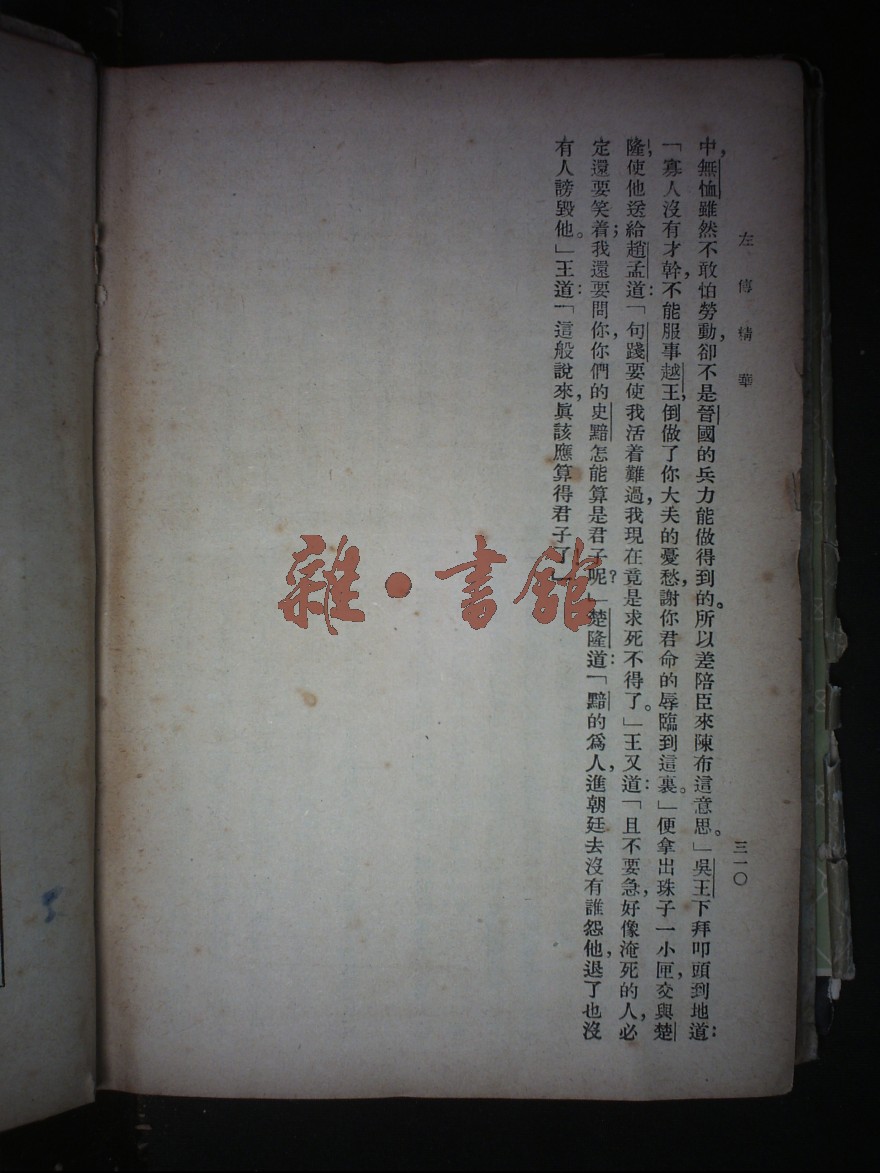 左傳精華
三一〇
中，無恤雖然不敢怕勞動，卻不是晉國的兵力能做得到的。所以差陪臣來陳布這意思。」吳王下拜叩頭到地道：
「寡人沒有才幹，不能服事越王，倒做了你大夫的憂愁，謝你君命的辱臨到這裏。」便拿出珠子一小匣，交與楚
隆，使他送給趙孟道：「句踐要使我活着難過，我現在竟是求死不得了。」王又道：「且不要急，好像淹死的人，必
定還要笑着；我還要問你，你們的史黯怎能算是君子呢？」楚隆道：「黯的爲人，進朝廷去沒有誰怨他，退了也沒
有人謗毀他。」王道：「這般說來，眞該應算得君子了」
雜·書館